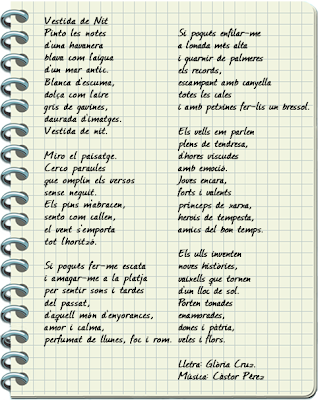 Vestida de Nit
Pinto les notes
d'una havanera
blava com l'aigua
d'un mar antic.
Blanca d'escuma,
dolça com l'aire
gris de gavines,
daurada d'imatges.
Vestida de nit.
Miro el paisatge.
Cerco paraules
que omplin els versos
sense neguit.
Els pins m'abracen,
sento com callen,
el vent s'emporta
tot l'horitzó.
Si pogués fer-me escata
i amagar-me a la platja
per sentir sons i tardes
del passat,
d'aquell món d'enyorances,
amor i calma,
perfumat de llunes, foc i rom.
Si pogués enfilar-me
a l'onada més alta
i guarnir de palmeres
els records,
escampant amb canyella
totes les cales
i amb petxines fer-lis un bressol.
Els vells em parlen
plens de tendresa,
d'hores viscudes
amb emoció.
Joves encara,
forts i valents
prínceps de xarxa,
herois de tempesta,
amics del bon temps.
Els ulls inventen
noves històries,
vaixells que tornen
d'un lloc de sol.
Porten tonades
enamorades,
dones i pàtria,
veles i flors.
Lletra: Glòria Cruz.
Música: Càstor Pérez